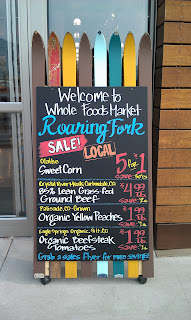 Welcome to
Whole Foods Market
Roaring Fork
SALE! LOCAL
Olathe
Sweet Corn
5 for $1
Crystal River Meats, Carbondale, CO
85% Lean Grass-fed
Ground Beef
$4.99
save
Palisade, CO - Grown
Organic Yellow Peaches
$1.99
save
Eagle Springs Organic, Silt, CO
Organic Beefsteak
Tomatoes
$1.99
save
Grab a sales flyer for more savings!